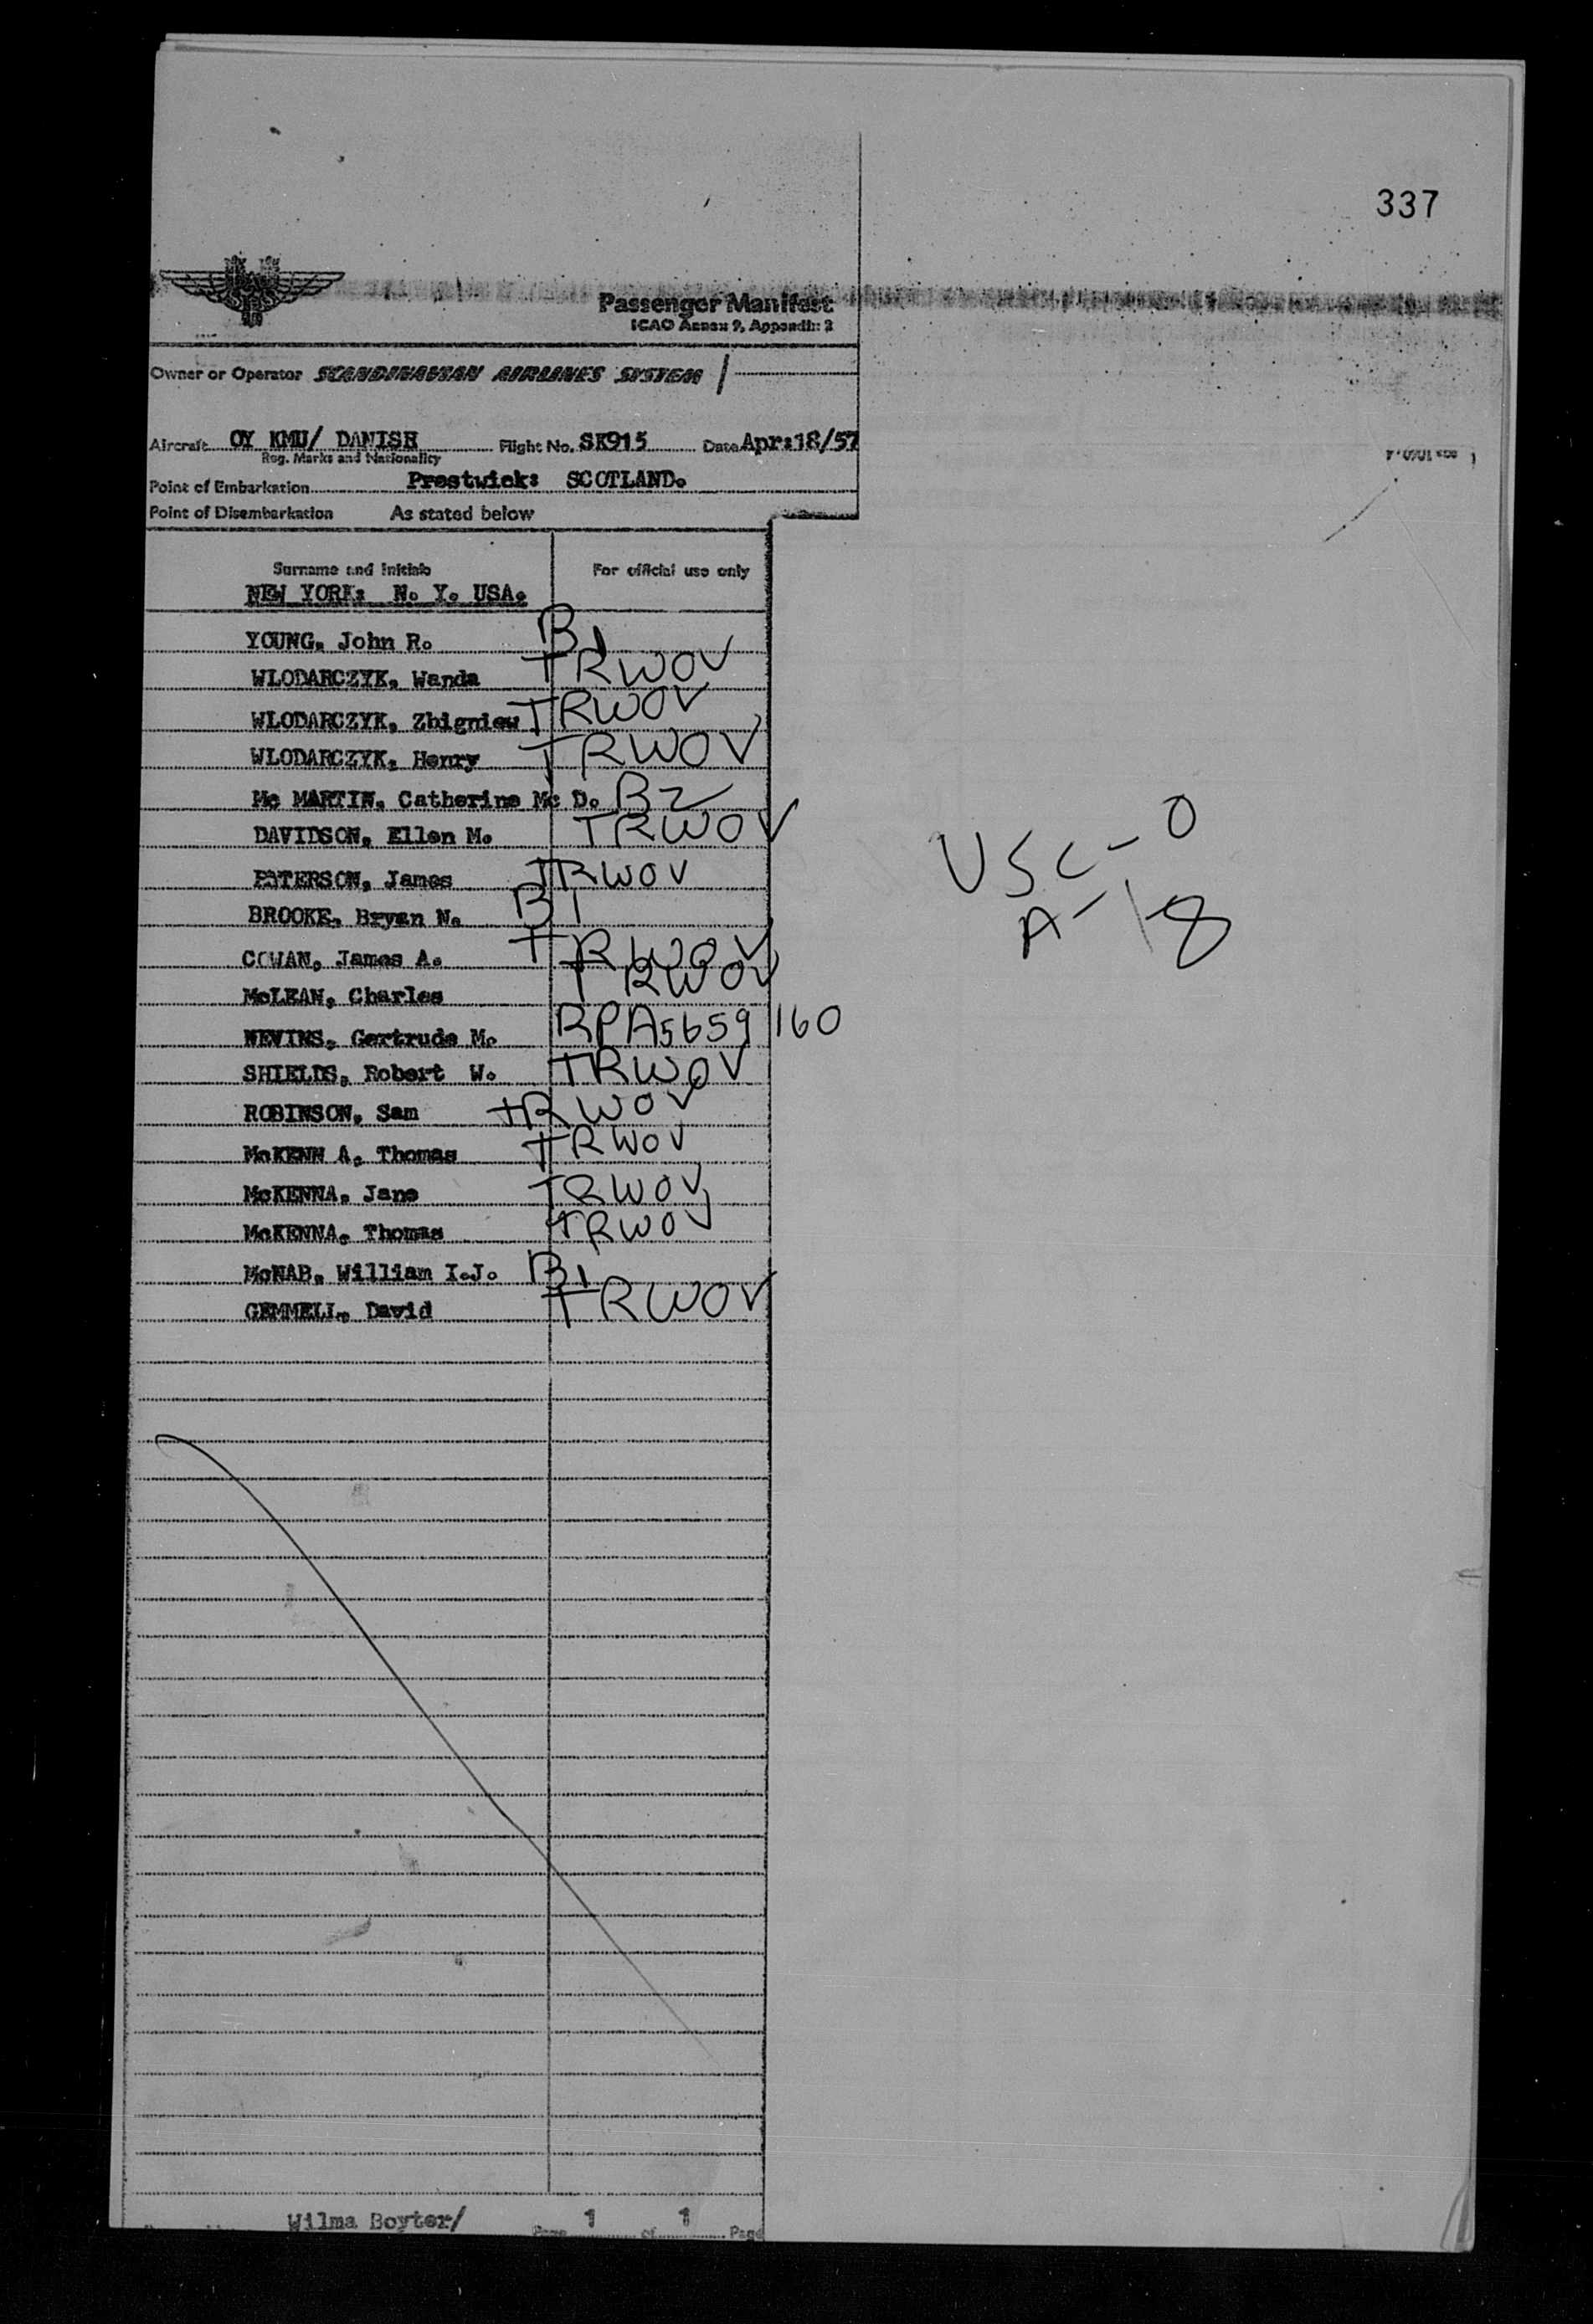 337
Passenger Manifest
ICAO Annex 9, Appendix 3
Owner or Operator SCANDINAVIAN AIRLINES SYSTEM
Aircraft OY KMU/ DANISH Flight No. SK915 Date Apr:18/57
Reg. Marks and Nationality
Point of Embarkation Prestwick: SCOTLAND.
Point of Disembarkation As stated below
Surname and Initials For official use only
NEW YORK: N. Y. USA.
YOUNG, John R. B1
WLODARCZYK, Wanda TRWOV
WLODARCZYK, Zbigniew TRWOV
WLODARCZYK, Henry TRWOV
Mc MARTIN, Catherine Mc D. B2
DAVIDSON, Ellen M. TRWOV
PATERSON, James TRWOV
BROOKE, Bryan N. B1
COWAN, James A. TRWOV
McLEAN, Charles TRWOV
NEVINS, Gertrude M. RPA5659160
SHIELDS, Robert W. TRWOV
ROBINSON, Sam TRWOV
McKENN A, Thomas TRWOV
McKENNA, Jane TRWOV
McKENNA, Thomas TRWOV
McNAB, William I.J. B1
GEMMELL, David TRWOV
USC-0
A-18
Wilma Boyter/ Page 1 of 1 Page